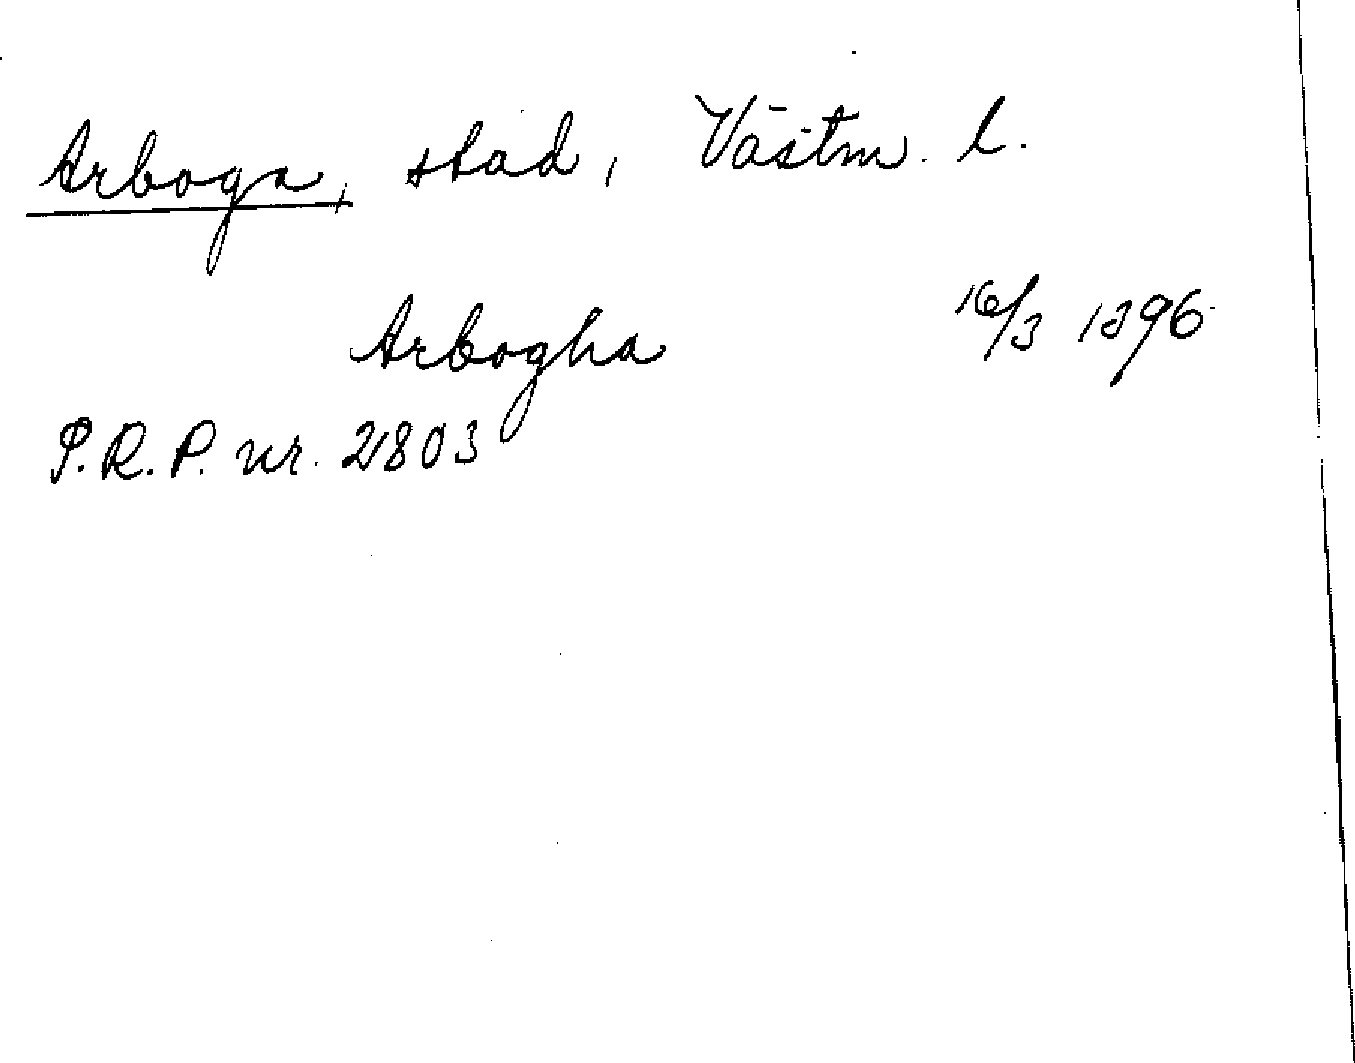 Arboga, stad, Västm. l.
Arbogha 16/3 1396
P.R.P. nr. 2803